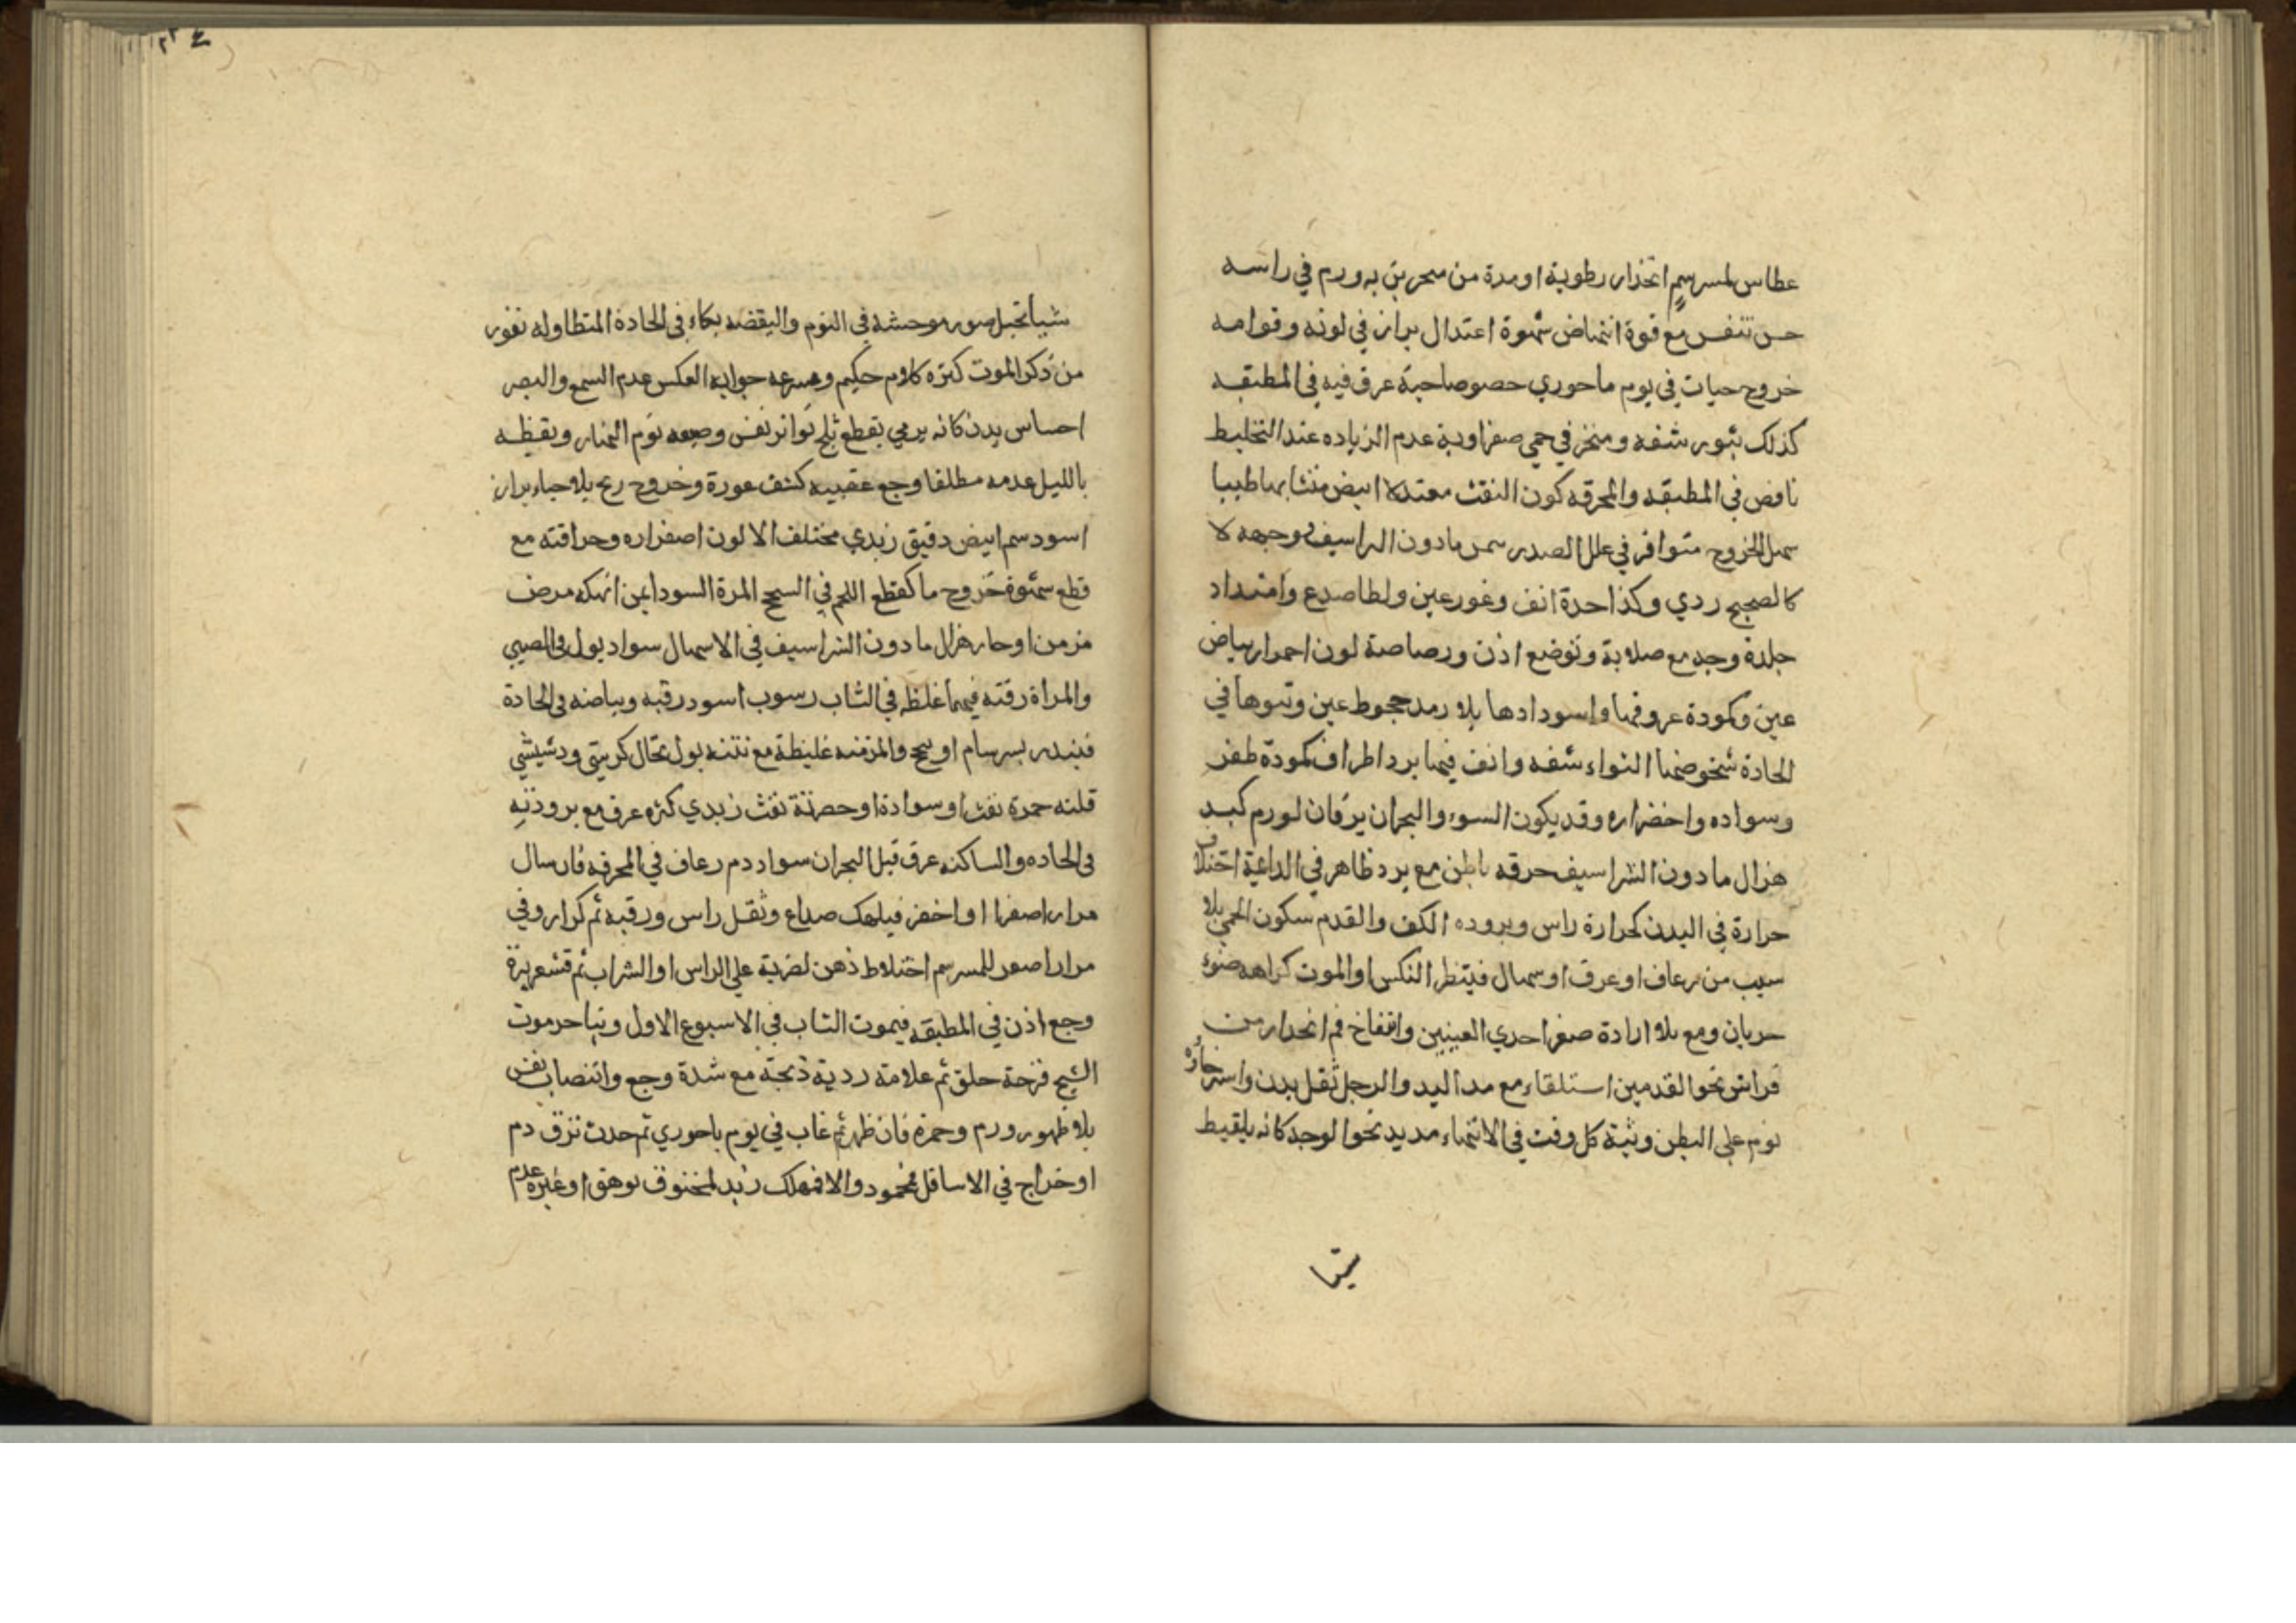 عطاس لمسرسم انحدار رطوبة او مدة من منخرين به ورم في راسه
حسن تنفس مع قوة انتهاض شهوة اعتدال براز في لونه وقوامه
خروج حيات في يوم باحوري خصوصا حية عرق فيه في المطبقه
كذلك بثور شفه ومنخر في حمي صفراوية عدم الزياده عند التخليط
نافض في المطبقه والمحرقه كون النفث معتدلا ابيض متشابها طيبا
سهل الخروج متوافر في علل الصدر سمن مادون الراسيف وجهه لا
كالصحيح ردي وكذا حدة انف وغور عين ولطا صدع وامتداد
جلدة وجه مع صلابة وتوضع اذن ورصاصة لون احمرار بياض
عين وكمودة عروقها واسودادها بلا رمد جحوظ عين ونتوها في
الحادة شخوصها التواء شفه وانف فيها برد اطراف كمودة ظفر
وسواده واخضراره وقد يكون السوء والبحران يرقان لورم كبد
هزال مادون الشراسيف حرقه باطن مع برد ظاهر في الداعية اختلاف
حرارة في البدن كحرارة راس وبروده الكف والقدم سكون الحمي بلا
سبب من رعاف او عرق او سهال فينتظر النكس او الموت كراهه ضوء
جريان ومع بلا ارادة صغر احدي العينين وانفتاخ فم انحدار من
فراش نحو القدمين استلقاء مع مد اليد والرجل ثقل بدن واسترخاؤه
نوم علي البطن وثبة كل وقت في الانتهاء مد يد نحو الوجه كانه يلقيط
شيا
شيأ تخيل صور موحشه في النوم واليقضه بكاء في الحادة المتطاوله نفور
من ذكر الموت كثره كلام حكيم وسرعه جوابه العكس عدم السمع والبصر
احساس بدن كانه يرمي بقطع ثلج تواتر نفس وضيقه نوم النهار ويقظه
بالليل عدمه مطلقا وجع عقبيه كشف عورة وخروج ريح بلا حياء براز
اسود سم ابيض دقيق زبدي مختلف الالون اصفراره وحراقته مع
قطع شهوة خروج ما كقطع اللحم في السحج المرة السودا بمن انهكه مرض
مزمن او حار هزال مادون الشراسيف في الاسهال سواد بول في الصبي
والمراة رقته فيهما غلظه في الشاب رسوب اسود رقبه وبياضه في الحادة
فينذر بسرسام او سحج والمزمنه غليظة مع نتنه بول نخال كريتي ودشيشي
قلته حمرة نفث او سوادة او خضرتة نفث زبدي كثره عرق مع برودته
في الحاده والساكنه عرق قبل البحران سواد دم رعاف في المحرقه فان سال
مرار اصفر ا او اخضر فيهلك صداع وثقل راس ورقبه ثم كرار وفي
مرارا صفر للمسرسم اختلاط ذهن لضربة علي الراس او الشراب ثم قشعريرة
وجع اذن في المطبقه فيموت الشاب في الاسبوع الاول وتباخر موت
الشيخ قرحة حلق ثم علامة ردية ذبحة مع شدة وجع وانتصاب نفس
بلا ظهور ورم وحمرة فان ظهر ثم غاب في يوم باحوري ثم حدث نزف دم
او خراج في الاسافل فمحمود والا فهلك زبد لمخنوق بوهق او غيره عدم